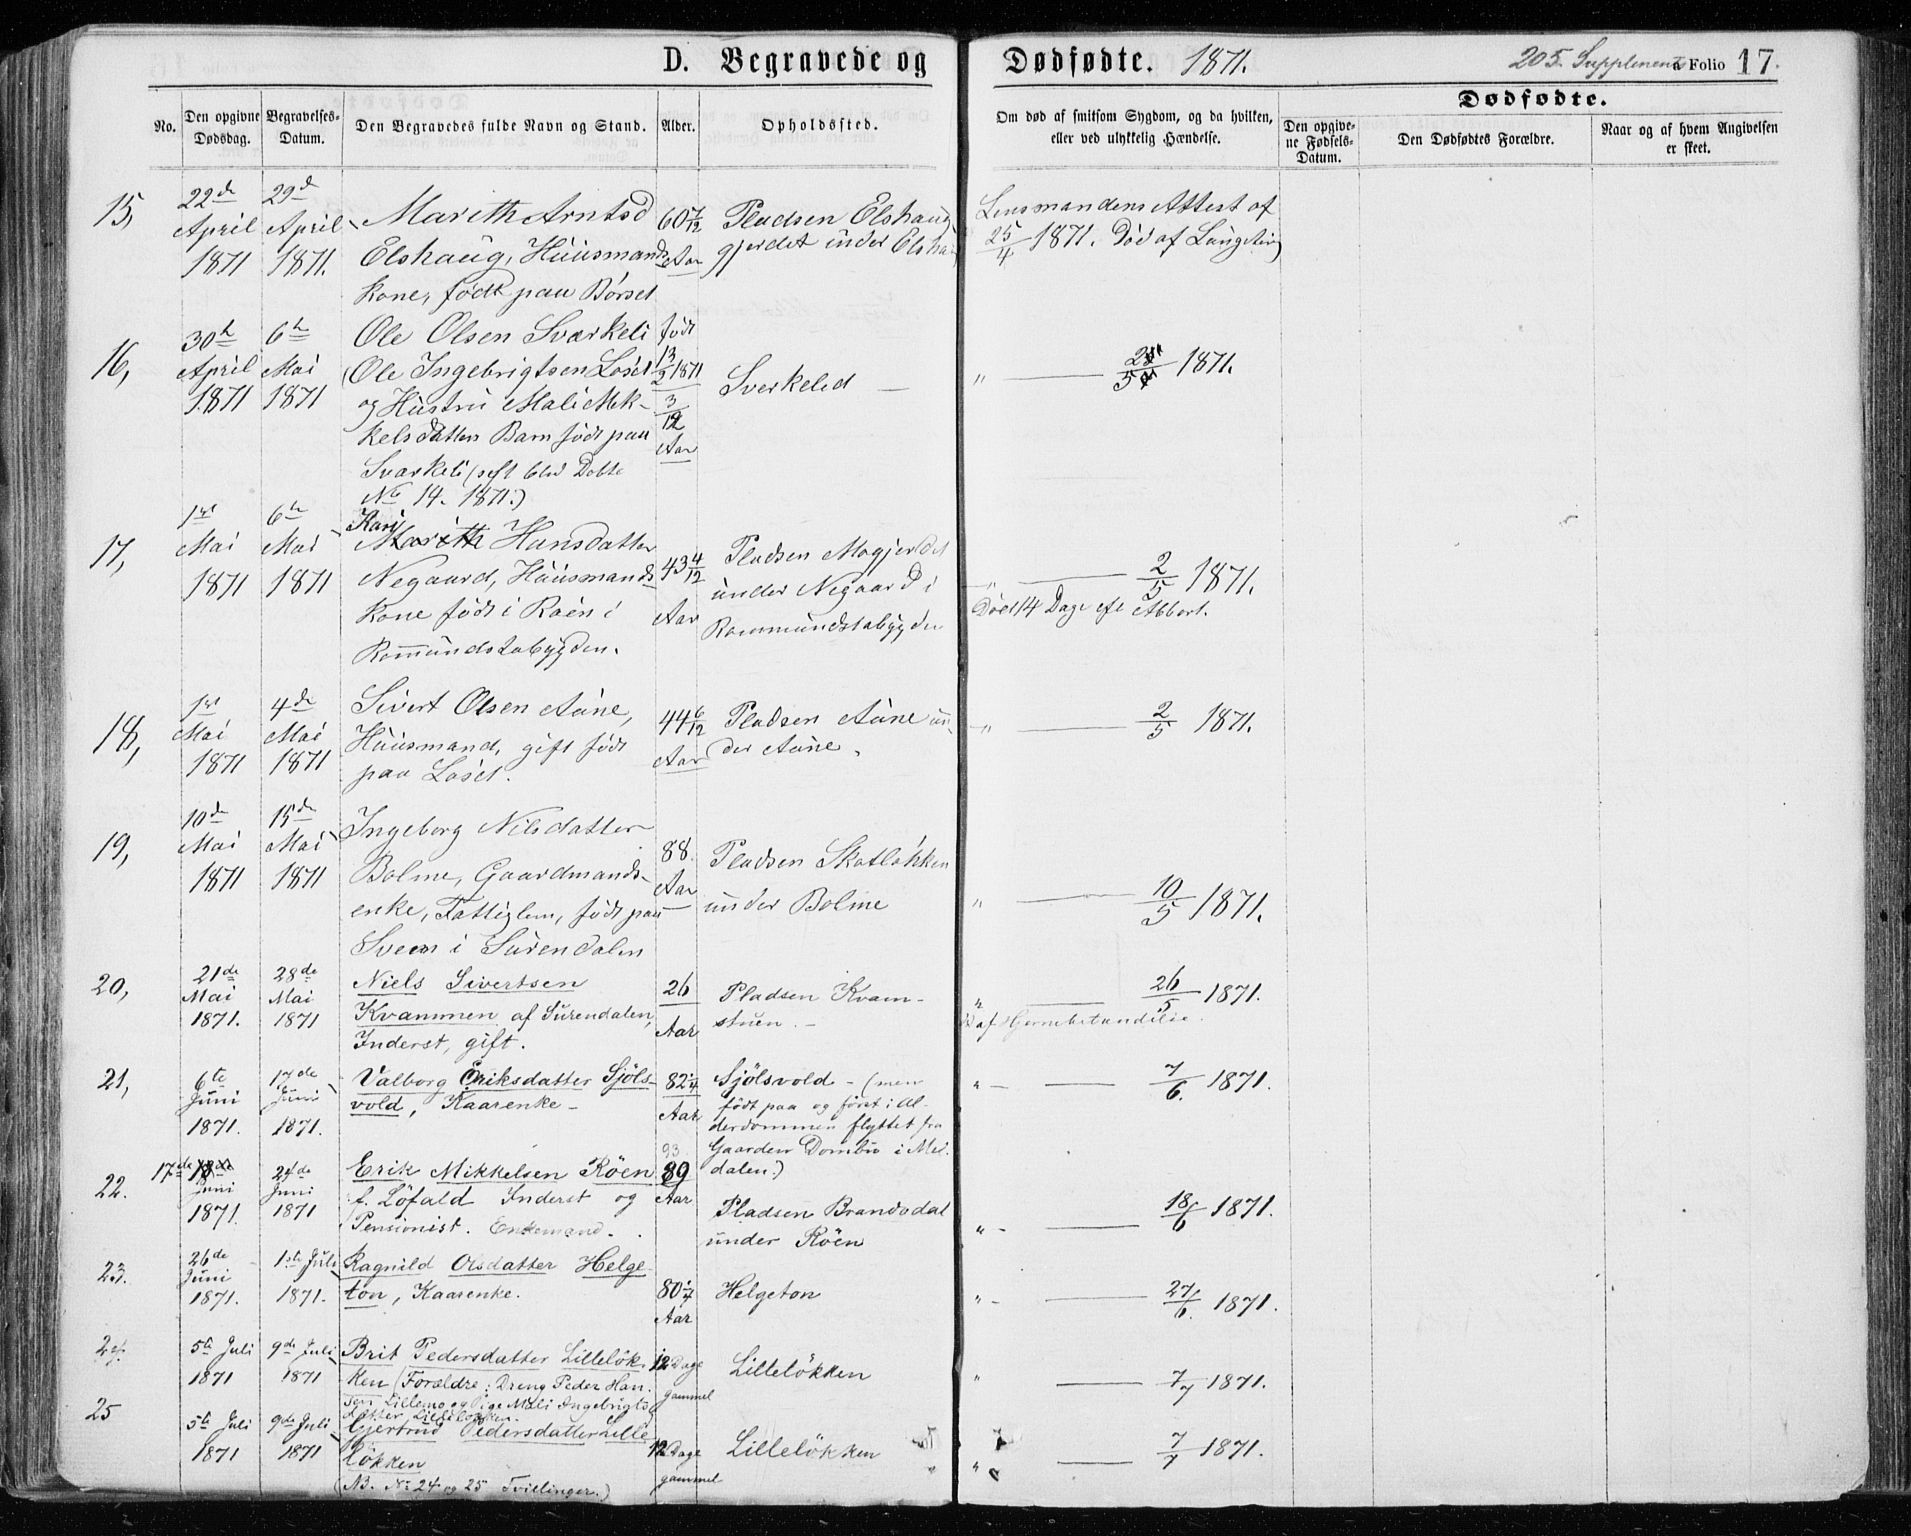 D. Begravede og Dødfødte. 1871. 205. Supplement a Folio 17.
No.
Den opgivne Dødsdag.
Begravelses-Datum.
Den Begravedes fulde Navn og Stand.
Alder.
Opholdssted.
Om død af smitsom Sygdom, og da hvilken,
eller ved ulykkelig Hændelse.
Dødfødte.
Den opgivne Fødsels-Datum.
Den Dødfødtes Forældre.
Naar og af hvem Angivelsen er skeet.
15, 22de April 1871 29de April 1871.
Marith Arntsd
Elshaug, Huusmands
Kone, født paa Børset
60 7/12 Aar
Pladsen Elshaug
gjerdet under Elshau
Lensmandens Attest af
25/4 1871. Død af
16, 30te April 1871 6te Mai 1871
Ole Olsen Svarkeli
(Ole Ingebrigtsen Løset
og Hustru Mali Mik-
kelsdatters Barn født paa
Svarkeli
No 14. 1871.)
født 13/2 1871
3/12 Aar
Sverkelid —
" — 2/5 1871.
17, 1ste Mai 1871 6te Mai 1871
Kari
Marith Hansdatter
Negaard, Huusmands
Kone født i Røen i
Romundstabygden.
43 4/12 Aar
Pladsen Mogjerdet
under Negaard i
Rommundstabygden
" — 2/5 1871.
Død 14 Dage eft Abbort.
18, 1ste Mai 1871 4de Mai 1871
Sivert Olsen Aune,
Huusmand, gift født
paa Løset.
44 6/12 Aar
Pladsen Aune un-
der Aune.
" — 2/5 1871.
19, 10de Mai 1871 15de Mai 1871
Ingeborg Nilsdatter
Bolme, Gaardmands-
enke, Fattiglem, født paa
Sveen i Surendalen
88. Aar
Pladsen Skotløkken
under Bolme
" — 10/5 1871.
20, 21de Mai 1871. 28de Mai 1871
Niels Sivertsen
Kvammen af Surendalen,
Inderst, gift.
26 Aar
Pladsen Kvam-
stuen. —
" — 26/5 1871.
21, 6te Juni 1871. 17de Juni 1871.
Valborg Eriksdatter Sjöls-
vold, Kaarenke —
82 1/4 Aar
Sjölsvold — (men
født paa og först i Al-
derdommen flyttet fra
Gaarden Dombu i Mel-
dalen.)
" — 7/6. 1871.
22. 17de 18de Juni 1871. 24de Juni 1871
Erik Mikkelsen Röen
f. Löfald Inderst og
Pensionist. Enkemand.
93
89 Aar
Pladsen Brandsdal
under Röen
" — 18/6 1871.
23. 26de Juni 1871. 1ste Juli 1871.
Ragnild Olsdatter Helge-
ton, Kaarenke.
80 1/4 Aar
Helgeton
" — 27/6. 1871.
24. 5te Juli 1871 9de Juli 1871
Brit Pedersdatter Lillelök-
ken (Foræeldre: Dreng Peder Han-
sen Lillemo og Pige Mali Ingebrigts
datter Lillelökken.
12 Dage gammel
Lillelökken
" — 7/7 1871.
25 5te Juli 1871 9de Juli 1871
Gjertrud Pedersdatter Lille
lökken
(NB. No 24 og 25 Tvillinger.)
12 Dage gammel
Lillelökken
" — 7/7 1871.